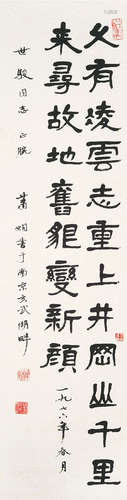 久有凌雲志重上井岡山千里
来尋故地舊貌變新顔
一九七六年春月
世駿同志正腕
蕭嫻書于南京玄武湖畔